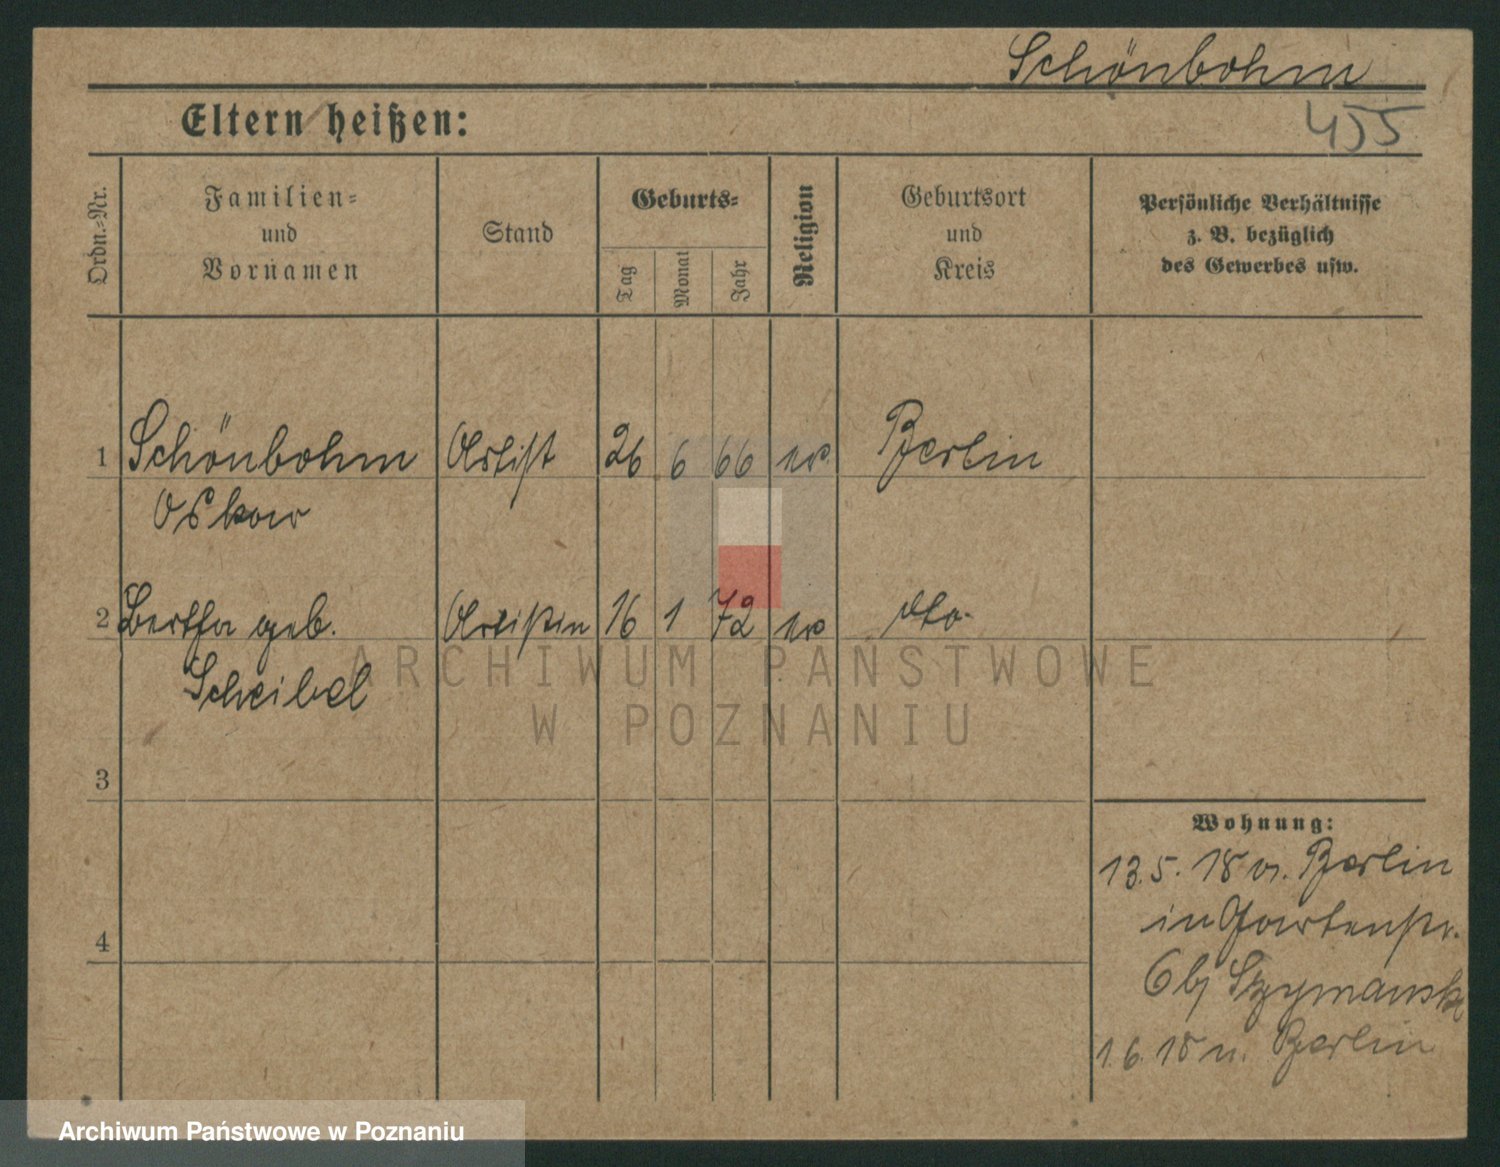 Schönbohm
455
Eltern heißen:
Ordn.-Nr.
Familien-
und
Vornamen
Stand
Geburts-
Tag
Monat
Jahr
Religion
Geburtsort
und
Kreis
Persönliche Verhältnisse
z. B. bezüglich
des Gewerbes usw.
1 Schönbohm Artist 26 6 66 ev. Berlin
Oskar
2 Bertha geb. Artistin 16 1 72 ev dto.
Scheibel
3
4
Wohnung:
13.5.18 v. Berlin
in Gartenstr.
6 bj Szymansk
1.6.18 n. Berlin
ARCHIWUM PAŃSTWOWE
W POZNANIU
Archiwum Państwowe w Poznaniu